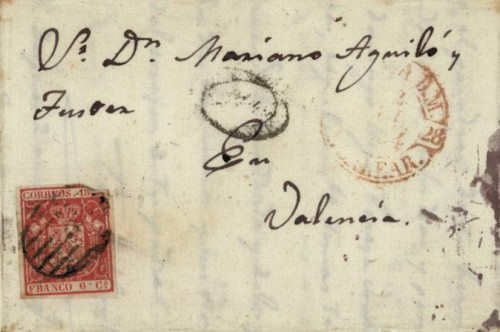 Sr. Dn. Mariano Aguiló y
Fuster
En
Valencia.
CORREOS
FRANCO 6 Cs